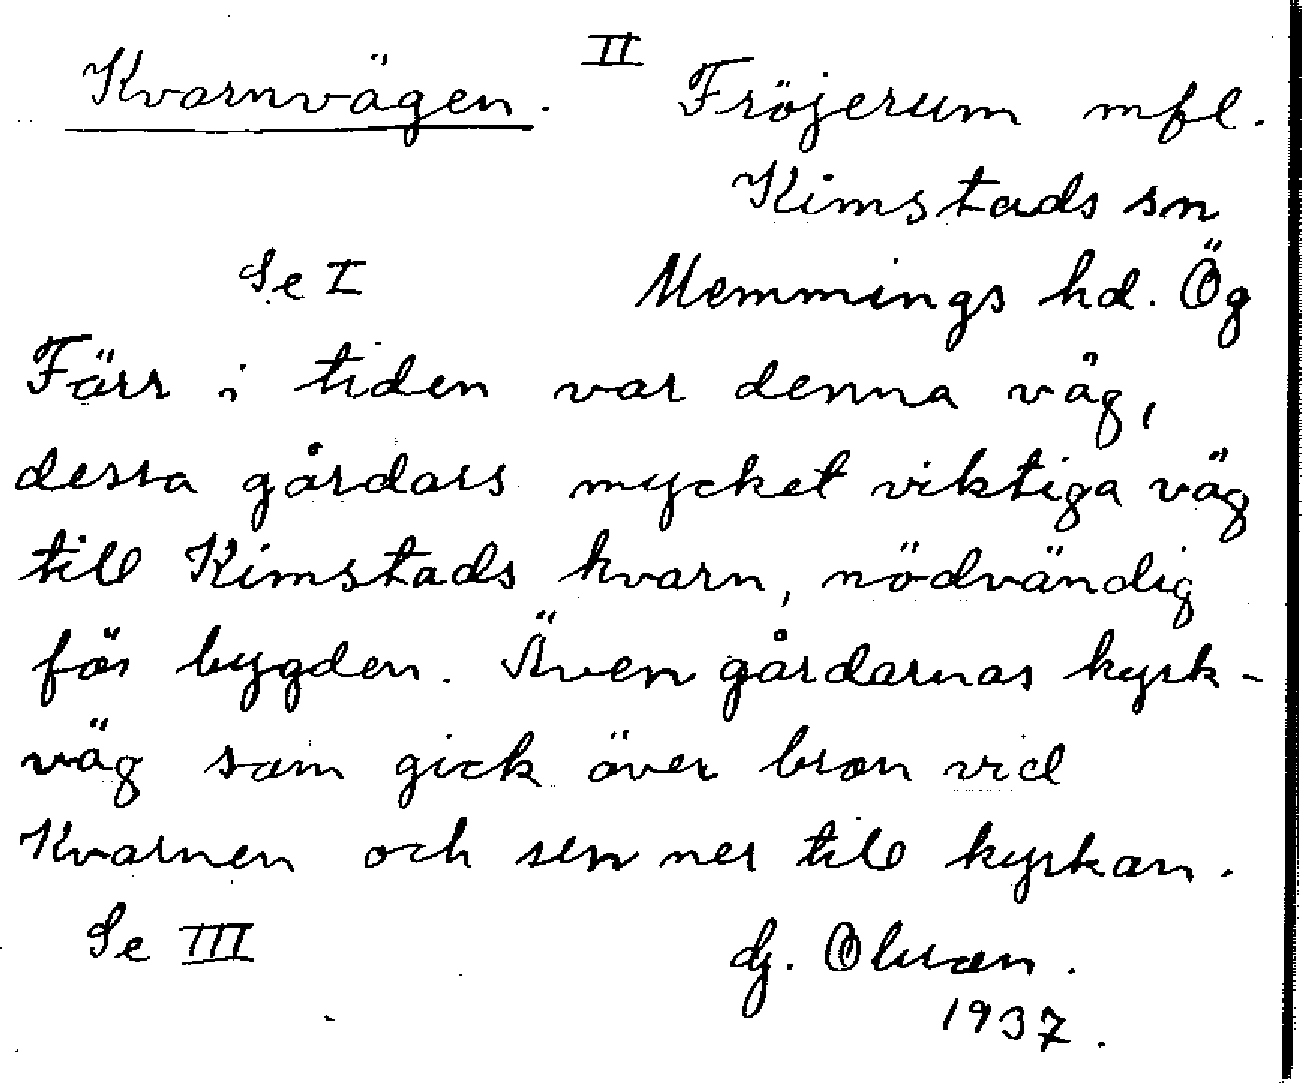 II
Kvarnvägen. Fröjerum mfl.
Kimstads sn
Se I Memmings hd. Ög
Förr i tiden var denna väg,
dessa gårdars mycket viktiga väg
till Kimstads kvarn, nödvändig
för bygden. Även gårdarnas kyrk-
väg som gick över bron vid
Kvarnen och sen ner till kyrkan.
Se III
1937.